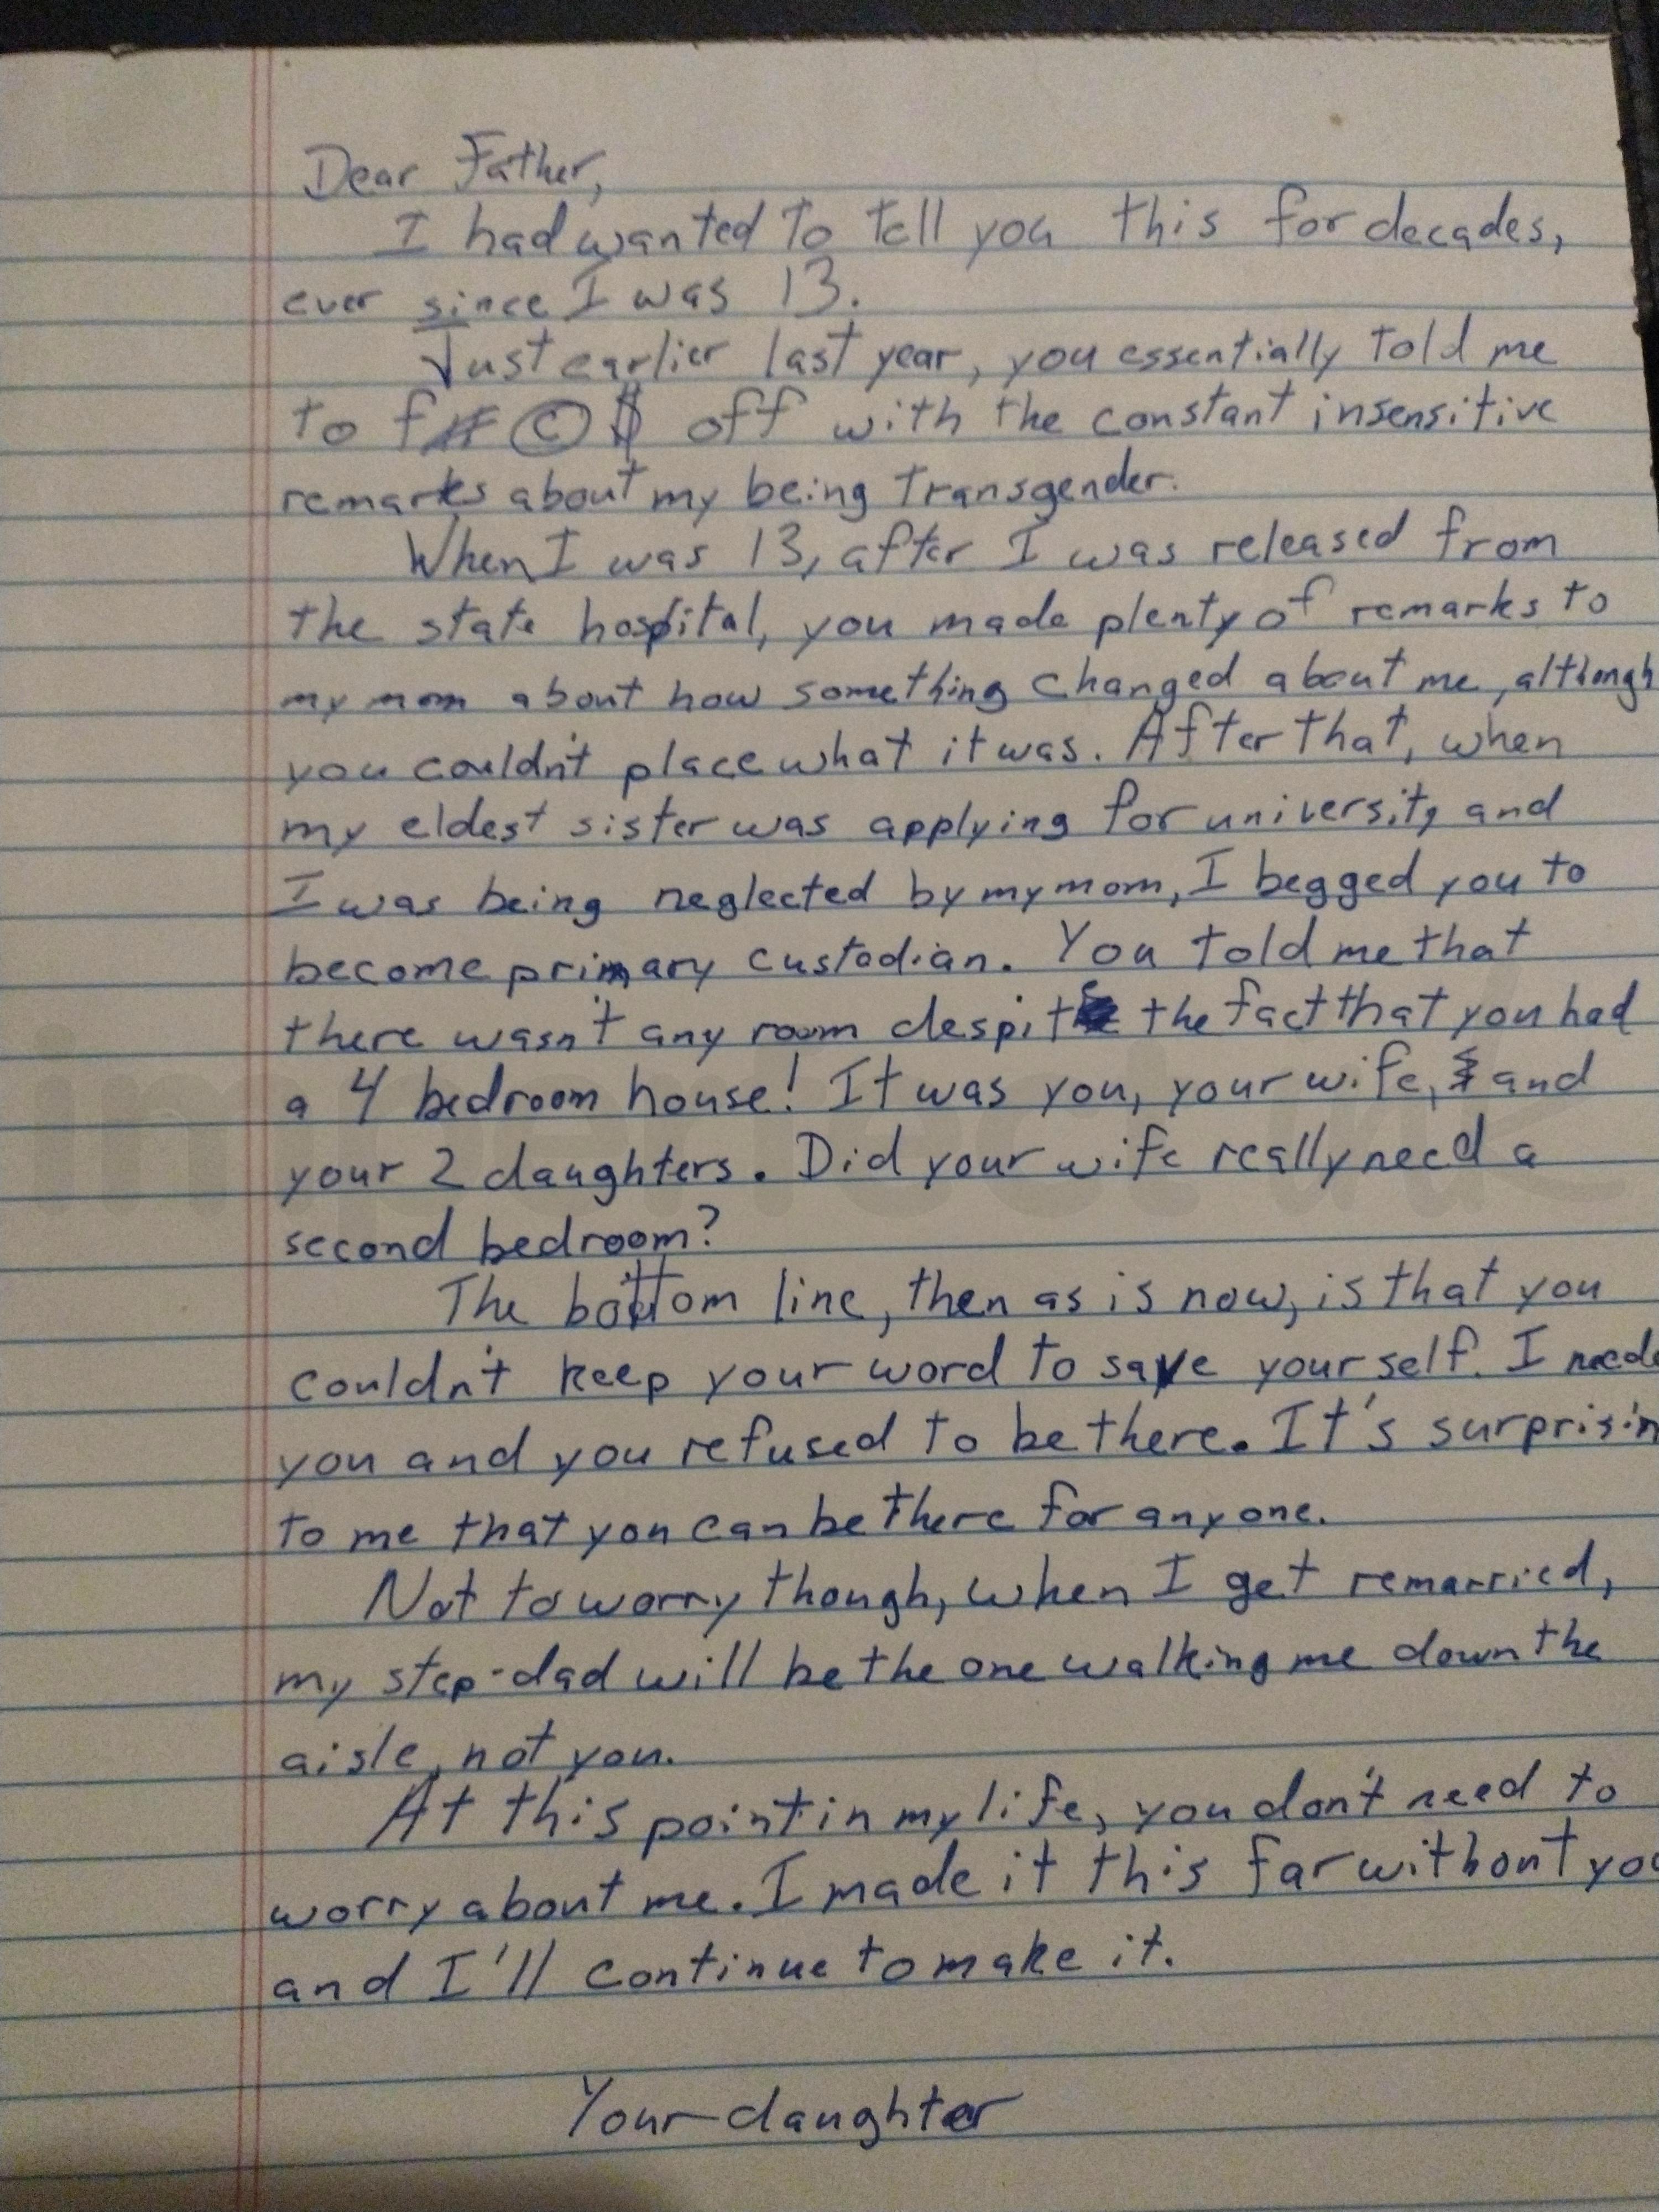 Dear Father,
I had wanted to tell you this for decades,
ever since I was 13.
Just earlier last year, you essentially told me
to f#©$ off with the constant insensitive
remarks about my being transgender.
When I was 13, after I was released from
the state hospital, you made plenty of remarks to
my mom about how something changed about me, although
you couldn't place what it was. After that, when
my eldest sister was applying for university and
I was being neglected by my mom, I begged you to
become primary custodian. You told me that
there wasn't any room despite the fact that you had
a 4 bedroom house! It was you, your wife, and
your 2 daughters. Did your wife really need a
second bedroom?
The bottom line, then as is now, is that you
couldn't keep your word to save yourself. I neede
you and you refused to be there. It's surprisin
to me that you can be there for anyone.
Not to worry though, when I get remarried,
my step-dad will be the one walking me down the
aisle, not you.
At this point in my life, you don't need to
worry about me. I made it this far without you
and I'll continue to make it.
Your daughter
imperfect ink